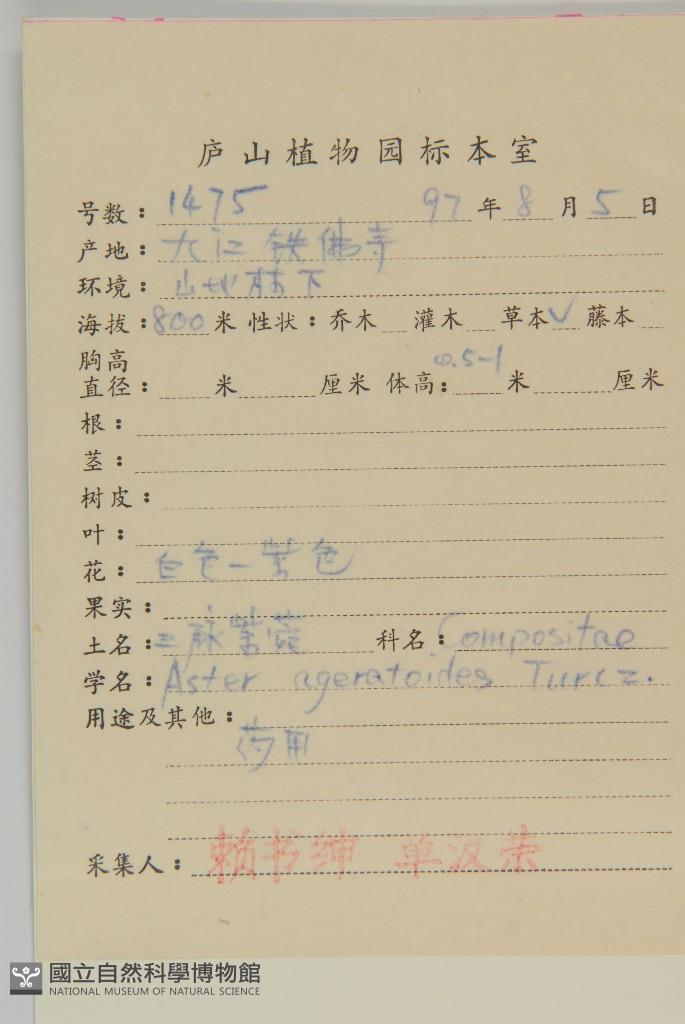 庐山植物园标本室
号数：1475 97年8月5日
产地：九江 铁佛寺
环境：山地林下
海拔：800米 性状：乔木 灌木 草本√ 藤本
胸高
直径： 米 厘米 体高：0.5-1米 厘米
根：
茎：
树皮：
叶：
花：白色—紫色
果实：
土名：三脉紫菀 科名：Compositae
学名：Aster ageratoides Turcz.
用途及其他：
药用
采集人：赖书绅 单汉荣
國立自然科學博物館
NATIONAL MUSEUM OF NATURAL SCIENCE